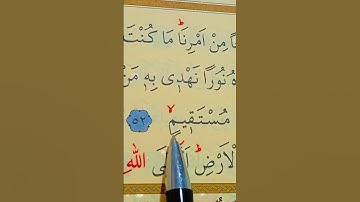 مِنْ اَمْرِنَاۜ مَا كُنْتَ
نُورًا نَهْد۪ي بِه۪ مَنْ
مُسْتَق۪يمٍۙ ٥٢
الْاَرْضِۜ اللّٰهِ